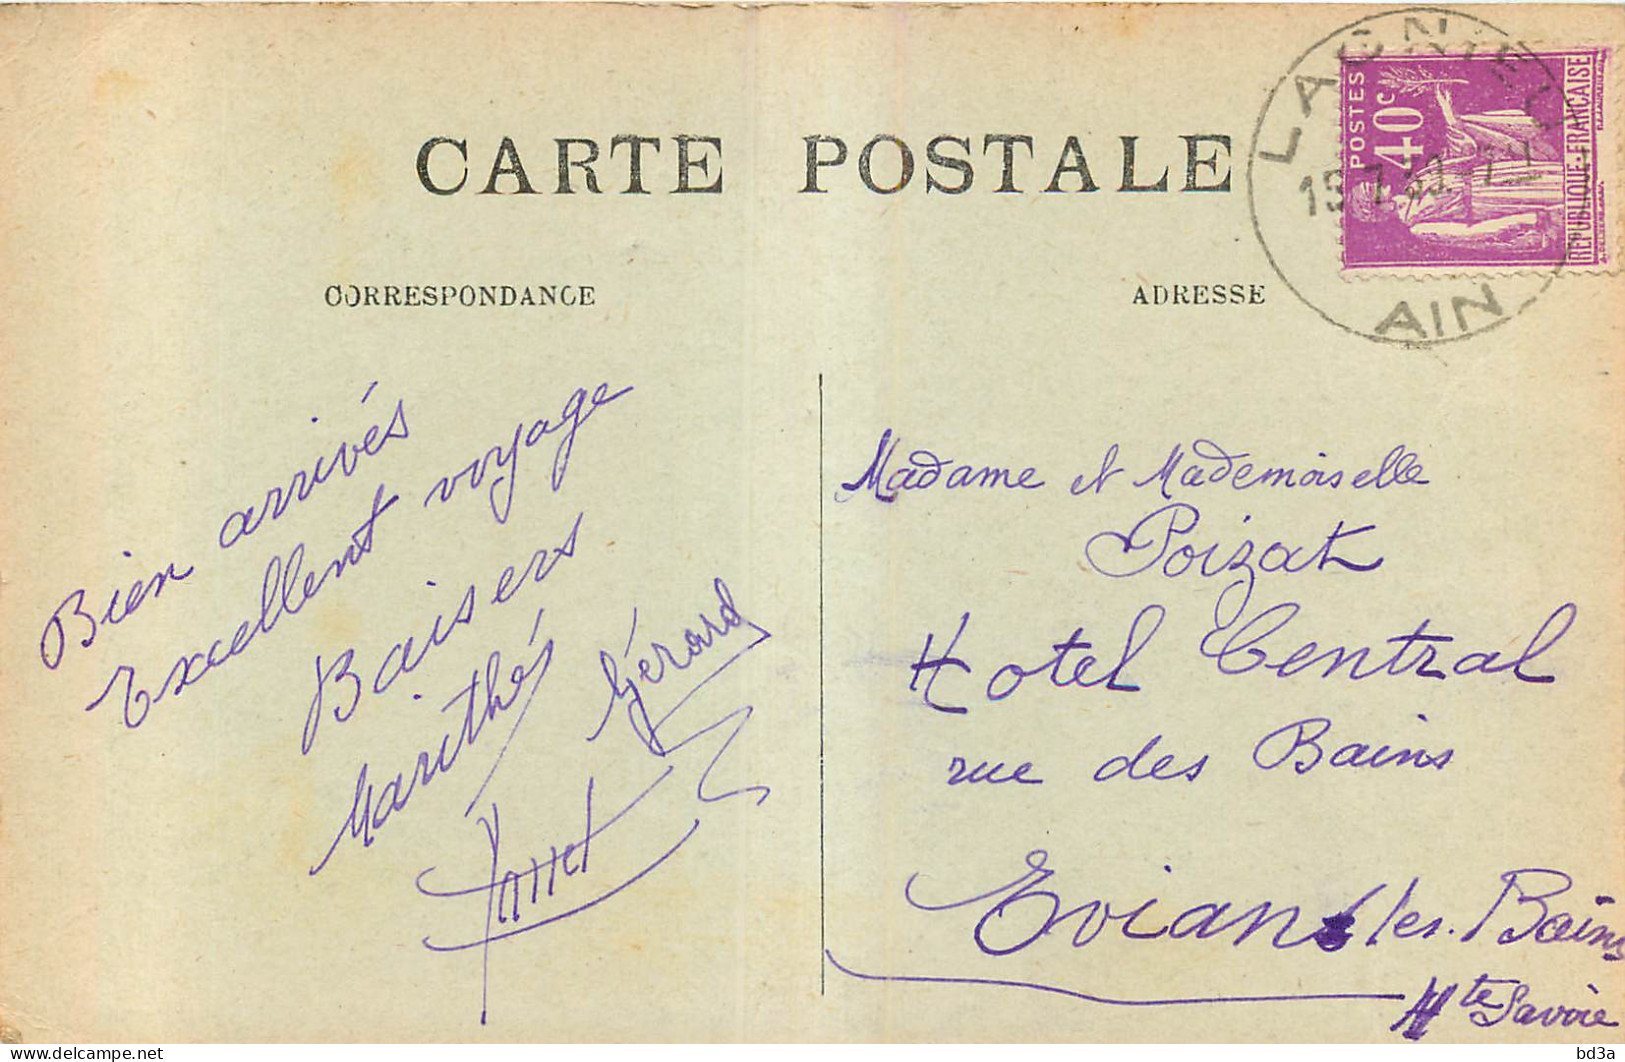 CARTE POSTALE
CORRESPONDANCE
ADRESSE
LAGNIEU
AIN
POSTES
40c
REPUBLIQUE·FRANCAISE
Bien arrivés
Excellent voyage
Baisers
Marithés Gérard
Madame et Mademoiselle
Poizat
Hotel Central
rue des Bains
Evian les. Bains
Hte Savoie
delcampe.net
bd3a